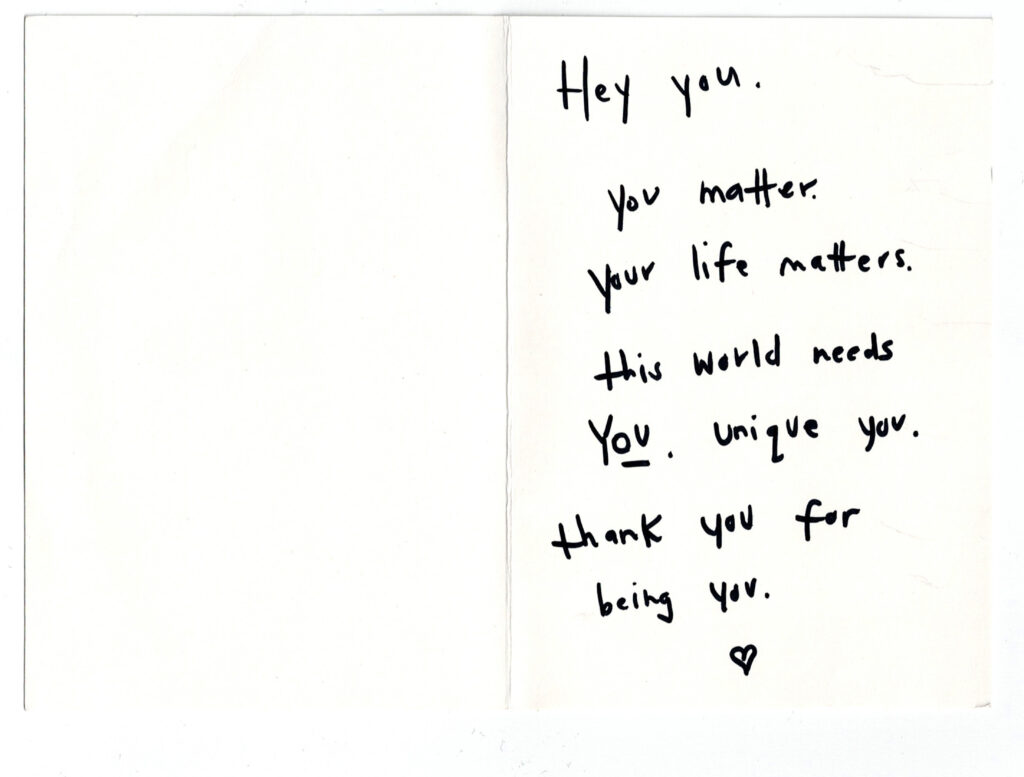 Hey you.
you matter.
your life matters.
this world needs
YOU. unique you.
thank you for
being you.